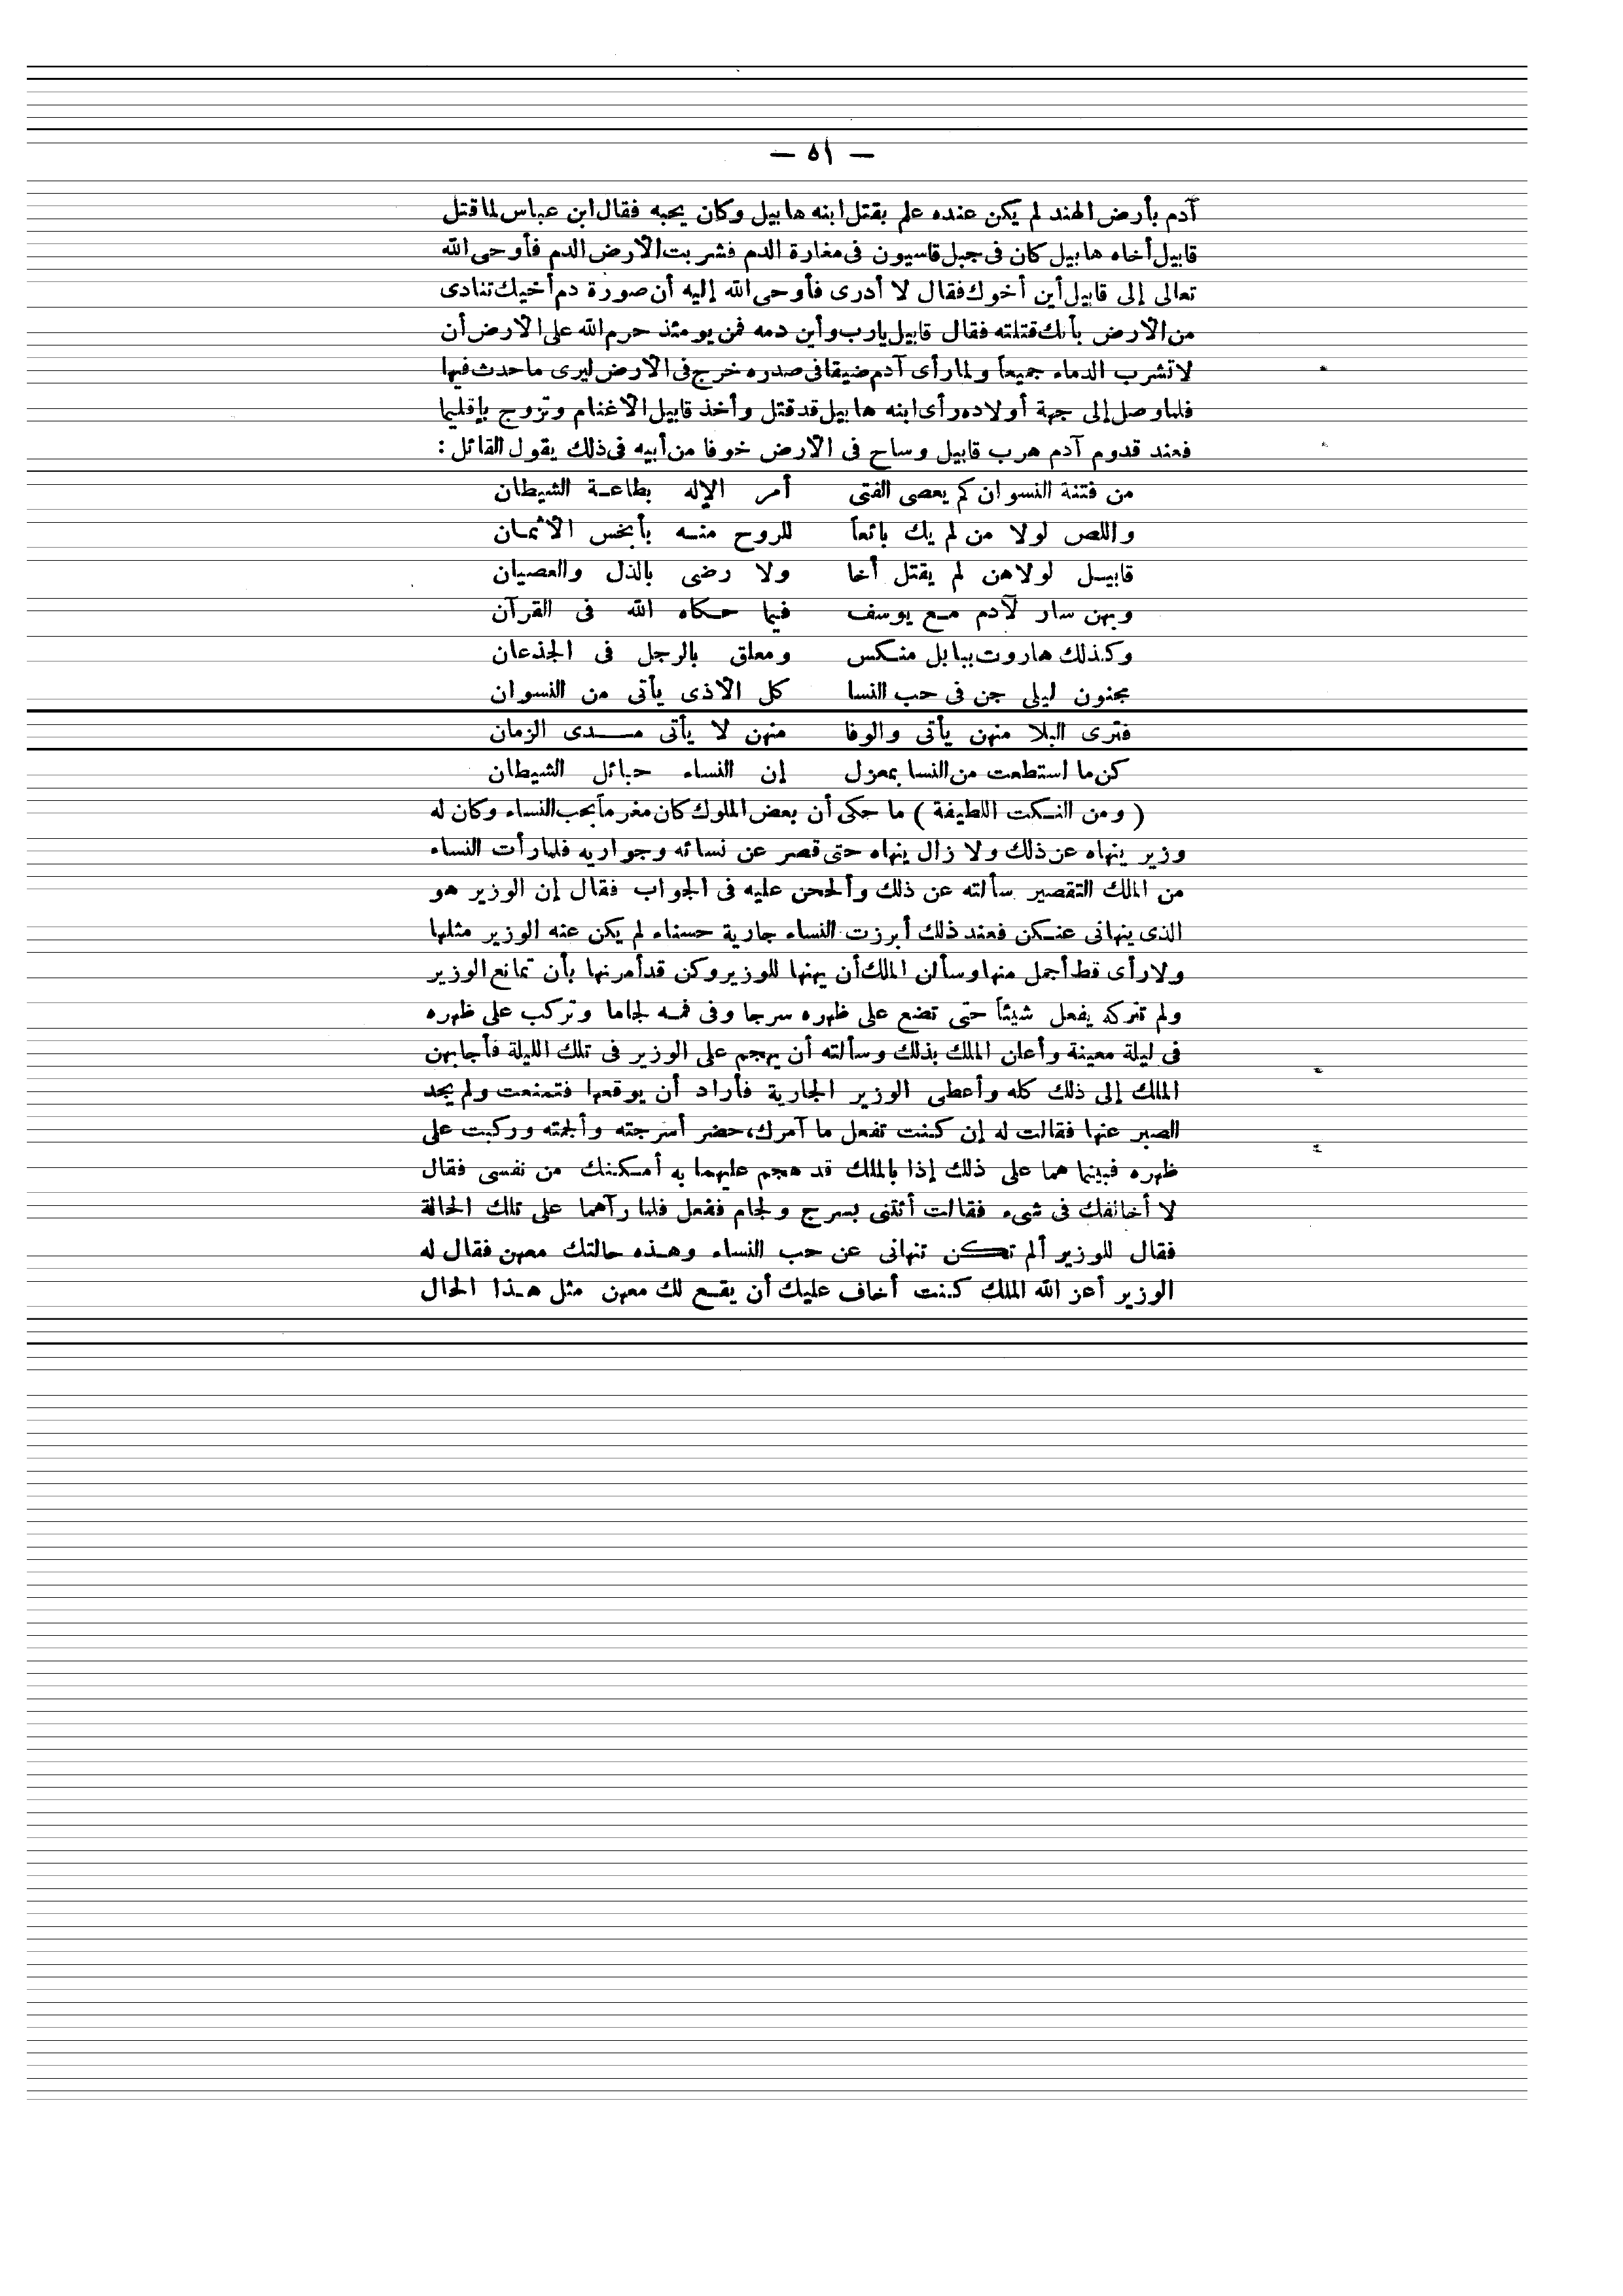 — ٥١ —
آدم بأرض الهند لم يكن عنده علم بقتل ابنه هابيل وكان يحبه فقال ابن عباس لما قتل
قابيل أخاه هابيل كان فى جبل قاسيون فى مغارة الدم فشربت الأرض الدم فأوحى الله
تعالى إلى قابيل أين أخوك فقال لا أدرى فأوحى الله إليه أن صورة دم أخيك تنادى
من الأرض بأنك قتلته فقال قابيل يارب وأين دمه فمن يومئذ حرم الله على الأرض أن
لا تشرب الدماء جميعاً ولما رأى آدم ضيقا فى صدره خرج فى الأرض ليرى ما حدث فيها
فلما وصل إلى جهة أولاده رأى ابنه هابيل قد قتل وأخذ قابيل الأغنام وتزوج بإقليما
فعند قدوم آدم هرب قابيل وساح فى الأرض خوفا من أبيه فى ذلك يقول القائل :
من فتنة النسوان كم يعصى الفتى أمر الإله بطاعة الشيطان
واللص لولا من لم يك بائعاً للروح منه بأبخس الأثمان
قابيل لولاهن لم يقتل أخا ولا رضى بالذل والعصيان
وبهن سار لآدم مع يوسف فيما حكاه الله فى القرآن
وكذلك هاروت ببابل منكس ومعلق بالرجل فى الجذعان
مجنون ليلى جن فى حب النسا كل الأذى يأتى من النسوان
فترى البلا منهن يأتى والوفا منهن لا يأتى مدى الزمان
كن ما استطعت من النسا بمعزل إن النساء حبائل الشيطان
( ومن النكت اللطيفة ) ما حكى أن بعض الملوك كان مغرماً بحب النساء وكان له
وزير ينهاه عن ذلك ولا زال ينهاه حتى قصر عن نسائه وجواريه فلما رأت النساء
من الملك التقصير سألته عن ذلك وألححن عليه فى الجواب فقال إن الوزير هو
الذى ينهانى عنكن فعند ذلك أبرزت النساء جارية حسناء لم يكن عنه الوزير مثلها
ولا رأى قط أجمل منها وسألن الملك أن يهنها للوزير وكن قد أمرنها بأن تمانع الوزير
ولم تتركه يفعل شيئاً حتى تضع على ظهره سرجا وفى فمه لجاما وتركب على ظهره
فى ليلة معينة وأعلن الملك بذلك وسألته أن يهجم على الوزير فى تلك الليلة فأجابهن
الملك إلى ذلك كله وأعطى الوزير الجارية فأراد أن يوقعها فتمنعت ولم يجد
الصبر عنها فقالت له إن كنت تفعل ما آمرك، حضر أسرجته وألجمته وركبت على
ظهره فبينما هما على ذلك إذا بالملك قد هجم عليهما به أمكنك من نفسى فقال
لا أخالفك فى شىء فقالت أئتنى بسرج ولجام ففعل فلما رآهما على تلك الحالة
فقال للوزير ألم تكن تنهانى عن حب النساء وهذه حالتك معهن فقال له
الوزير أعز الله الملك كنت أخاف عليك أن يقع لك معهن مثل هذا الحال